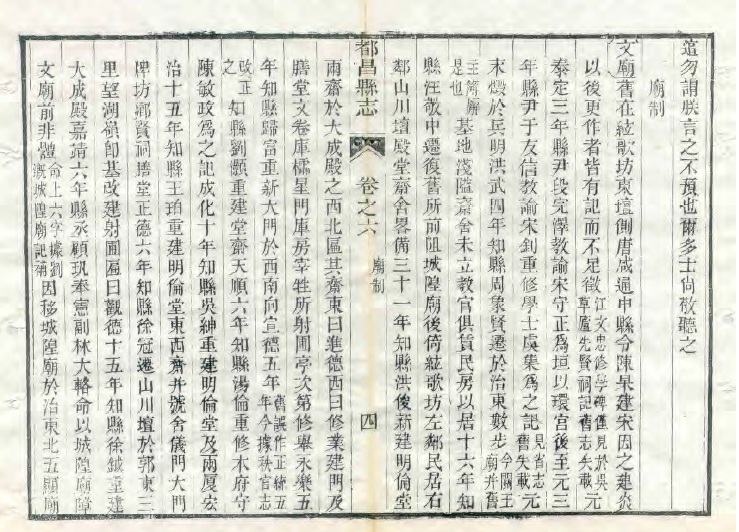 這勿謂朕言之不預也爾多士尚敬聽之
廟制
文廟舊在絃歌坊東壇側唐咸通中縣令陳杲建宋因之建炎
以後更作者皆有記而不足徵江文忠修學碑僅見於吳草廬先賢祠記舊志失載元
泰定三年縣尹段完澤教諭宋守正為垣以環宮後至元三
年縣尹于友信教諭宋釗重修學士虞集為之記見省志舊失載元
末燬於兵明洪武四年知縣周象賢遷於治東數步今關王廟并舊
主簿廨是也基地淺隘齋舍未立教官俱賃民房以居十六年知
縣汪敬中還復舊所前阻城隍廟後倚絃歌坊左鄰民居右
鄰山川壇殿堂齋舍畧備三十一年知縣洪俊新建明倫堂
都昌縣志 卷之六 廟制 四
兩齋於大成殿之西北區其齋東曰進德西曰修業建門及
膳堂文卷庫櫺星門庫房宰牲所射圃亭次第修舉永樂五
年知縣歸富重新大門於西南向宣德五年舊誤作正統五年今據秩官志
改正之知縣劉顥重建堂齋天順六年知縣湯倫重修本府守
陳敏政為之記成化十年知縣吳紳重建明倫堂及兩廈宏
治十五年知縣王珀重建明倫堂東西齋并號舍儀門大門
牌坊鄉賢祠膳堂正德六年知縣徐冠遷山川壇於郭東三
里望湖嶺卽基改建射圃匾曰觀德十五年知縣徐鉞重建
大成殿嘉靖六年縣丞顧玑奉憲副林大輅命以城隍廟障
文廟前非體命上六字據劉漑城隍廟記補因移城隍廟於治東北五顯廟